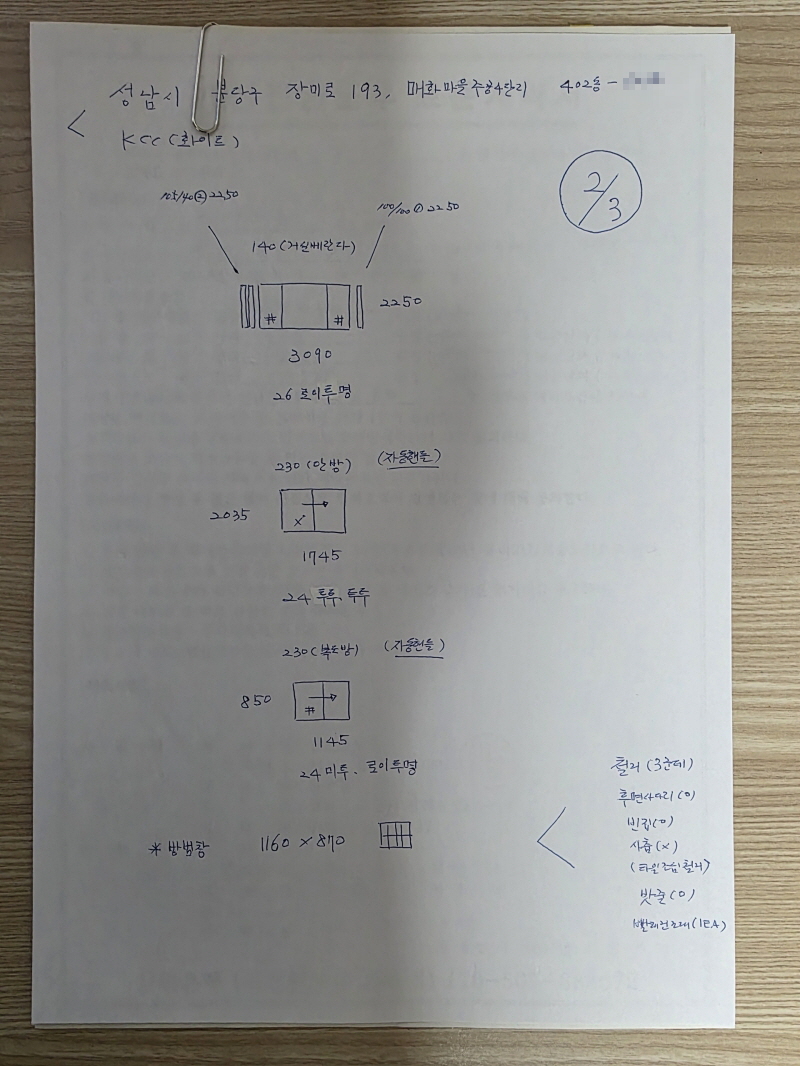 성남시 분당구 장미로 193, 매화마을주공4단지 402동 -
KCC (화이트)
2/3
105/40 ② 2250
100/100 ① 2250
140 (거실베란다)
# #
2250
3090
26 로이투명
230 (안방) (자동핸들)
2035
x
1745
24 투투. 투투
230 (복도방) (자동핸들)
850
#
1145
24 미투. 로이투명
* 방범창 1160 × 870
철거 (3군데)
후면사다리 (0)
빈집 (0)
사춤 (x)
(타일조심 철거)
밧줄 (0)
빨래건조대 (1EA)